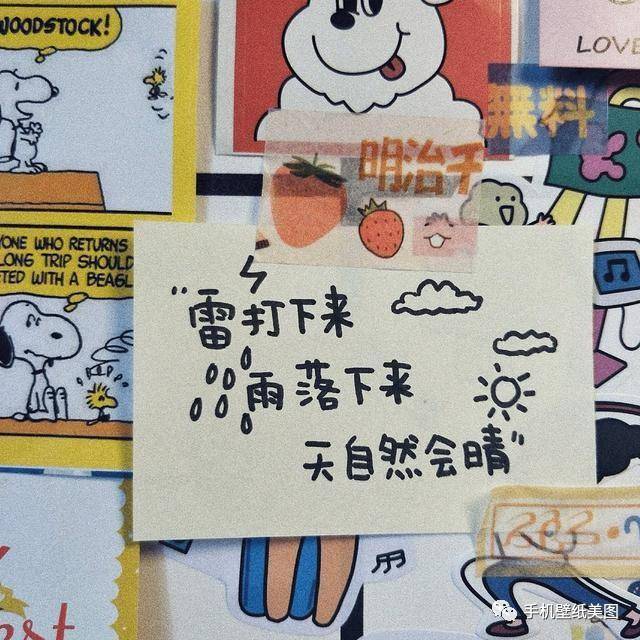 WOODSTOCK!
LOVE
無料
明治
YONE WHO RETURNS
LONG TRIP SHOULD
ETED WITH A BEAGL
"雷打下来
雨落下来
天自然会晴"
手机壁纸美图